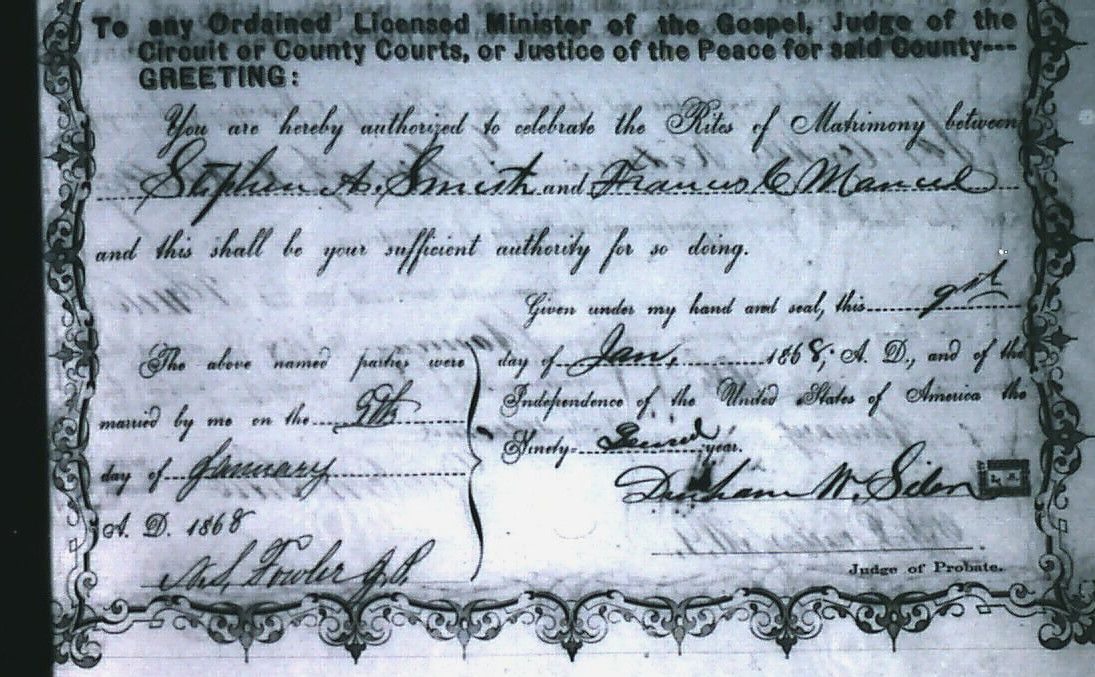 To any Ordained Licensed Minister of the Gospel, Judge of the
Circuit or County Courts, or Justice of the Peace for said County---
GREETING:
You are hereby authorized to celebrate the Rites of Matrimony between
Stephen A. Smith and Francis C Manuel
and this shall be your sufficient authority for so doing.
Given under my hand and seal, this 9th
day of Jan, 1868; A. D., and of the
Independence of the United States of America the
Ninety Second year.
W.
Judge of Probate.
The above named parties were
married by me on the 9th
day of January
A. D. 1868
Fowler J.P.